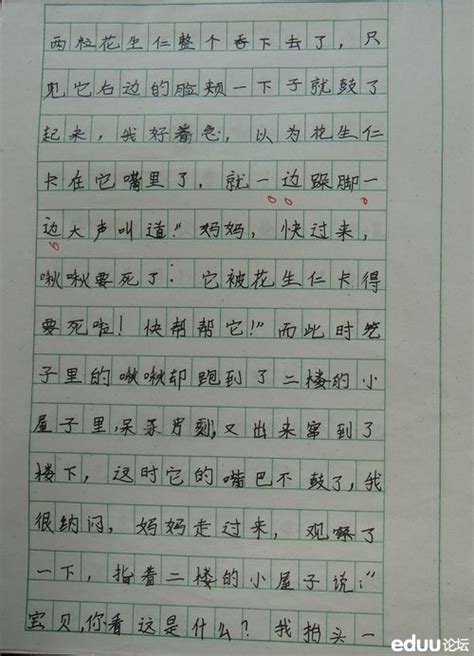 两粒花生仁整个吞下去了，只
见它右边的脸颊一下子就鼓了
起来，我好着急，以为花生仁
卡在它嘴里了，就一边跺脚一
边大声叫道："妈妈，快过来，
啾啾要死了：它被花生仁卡得
要死啦！快帮帮它！"而此时笼
子里的啾啾却跑到了二楼的小
屋子里，呆了片刻，又出来窜到了
楼下，这时它的嘴巴不鼓了，我
很纳闷，妈妈走过来，观察了
一下，指着二楼的小屋子说："
宝贝，你看这是什么？我抬头一
eduu论坛